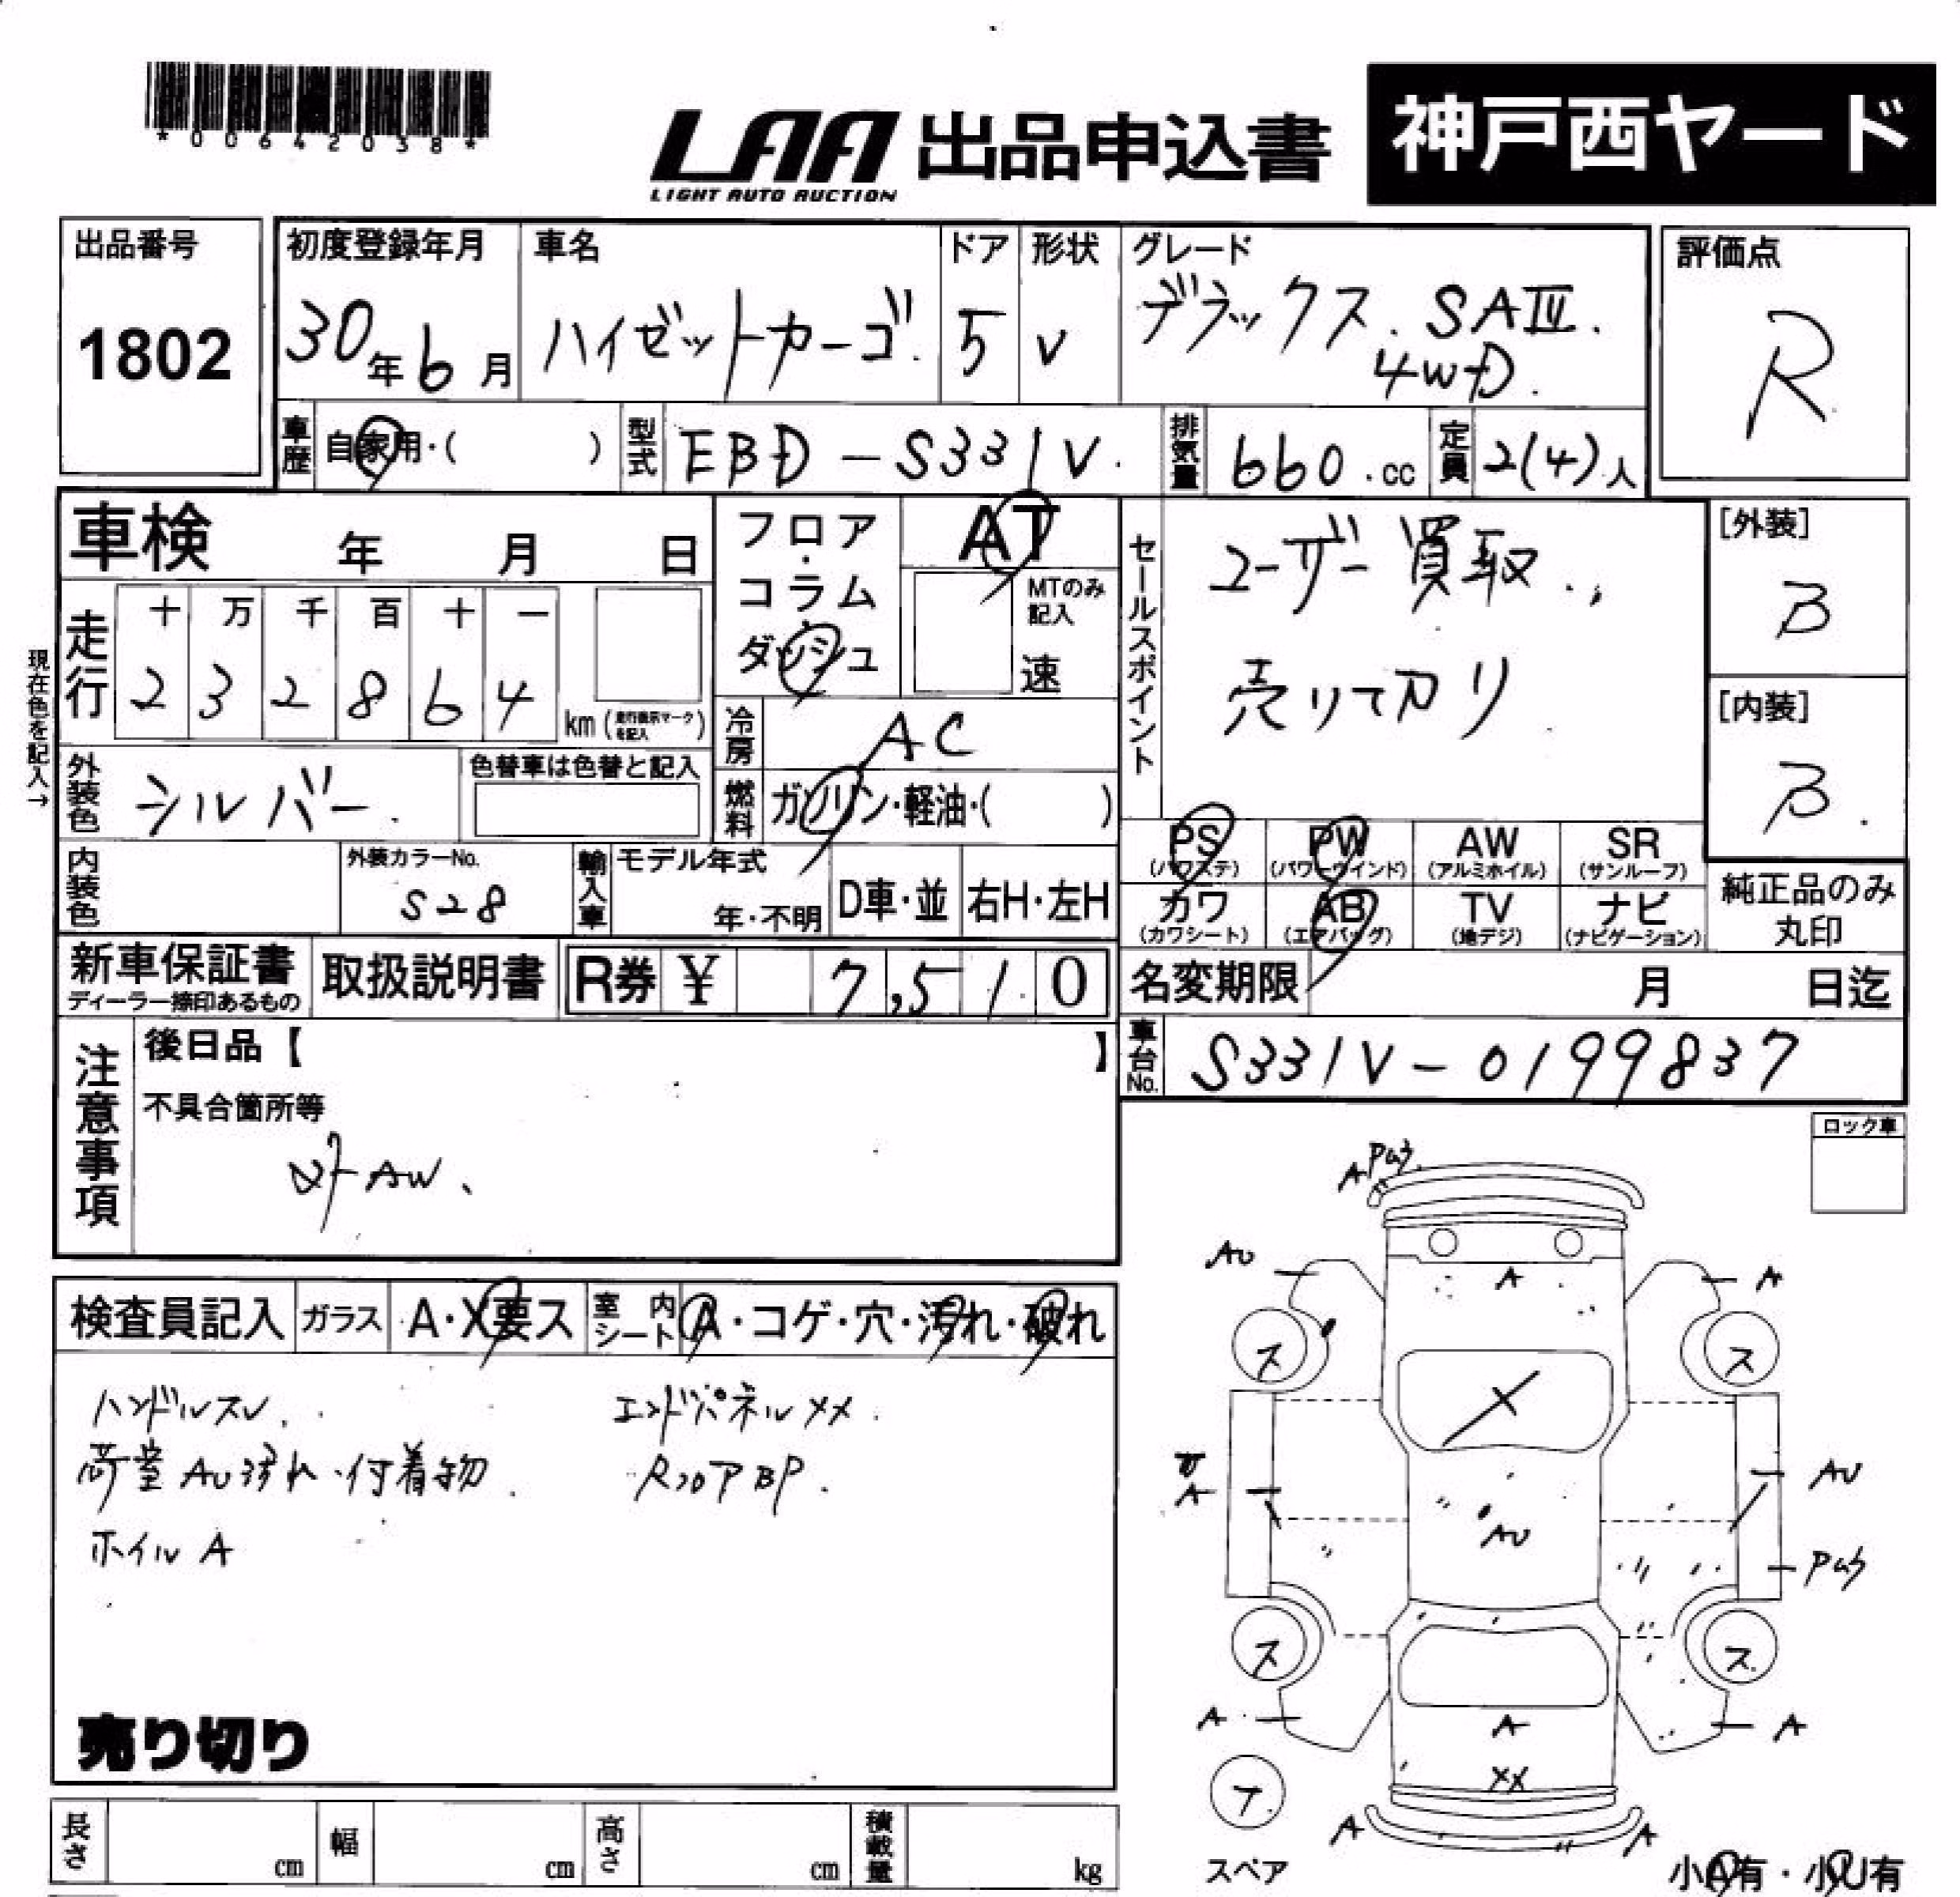 *00642038*
LAA 出品申込書
LIGHT AUTO AUCTION
神戸西ヤード
出品番号
1802
初度登録年月
30年6月
車名
ハイゼットカーゴ.
ドア
5
形状
V
グレード
デラックス. SAⅢ.
4WD.
評価点
R
車歴
自家用・( )
型式
EBD-S331V.
排気量
660.cc
定員
2(4)人
車検 年 月 日
フロア・コラム・ダッシュ
AT
MTのみ記入
速
セールスポイント
ユーザー買取.
売り切り
[外装]
B
[内装]
B.
現在色を記入→
走行
十 万 千 百 十 一
2 3 2 8 6 4
km(走行表示マークを記入)
冷房
AC
外装色
シルバー.
色替車は色替と記入
燃料
ガソリン・軽油・( )
PS
(パワステ)
PW
(パワーウインド)
AW
(アルミホイル)
SR
(サンルーフ)
内装色
外装カラーNo.
S28
輸入車
モデル年式
年・不明
D車・並
右H・左H
カワ
(カワシート)
AB
(エアバッグ)
TV
(地デジ)
ナビ
(ナビゲーション)
純正品のみ
丸印
新車保証書
ディーラー捺印あるもの
取扱説明書
R券 ¥ 7,510
名変期限 月 日迄
車台No.
S331V-0199837
注意事項
後日品【 】
不具合箇所等
AW、
ロック車
検査員記入
ガラス
A・X要ス
室内シート
A・コゲ・穴・汚れ・破れ
ハンドルスレ.
エンドパネルXX.
荷室AU汚れ・付着物.
RフロアBP.
ホイルA
売り切り
A
AU
A
A
ス
ス
X
A
AU
AU
ス
ス
A
A
A
XX
A
A
スペア
小A有・小U有
長さ
cm
幅
cm
高さ
cm
積載量
kg